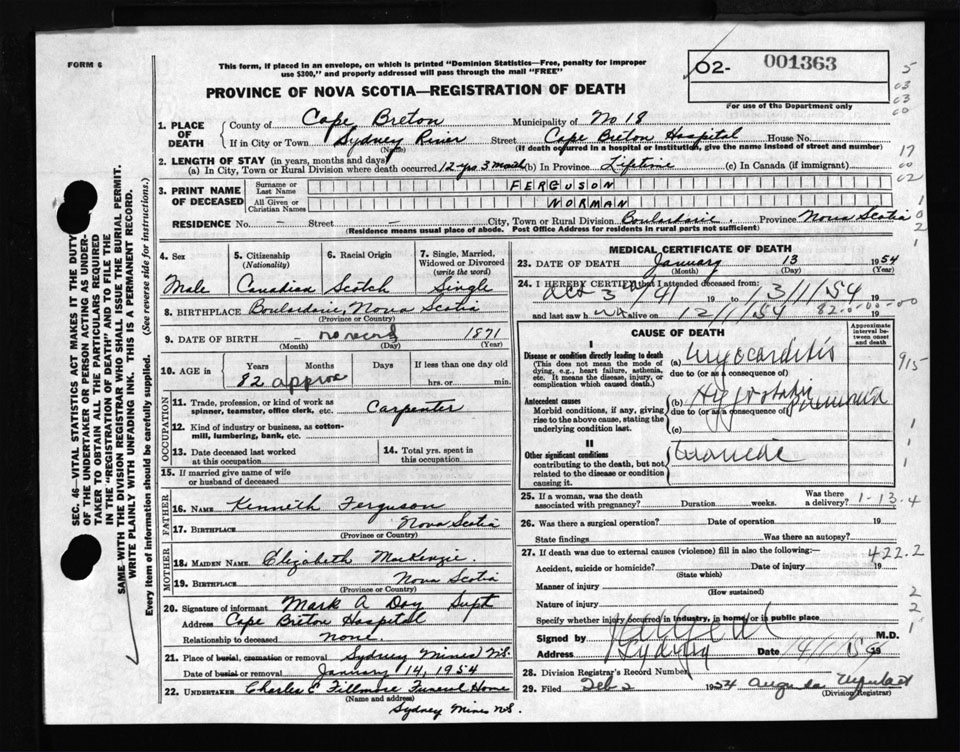 FORM 6
This form, if placed in an envelope, on which is printed "Dominion Statistics—Free, penalty for improper
use $300," and properly addressed will pass through the mail "FREE"
O2- 001363
For use of the Department only
PROVINCE OF NOVA SCOTIA—REGISTRATION OF DEATH
1. PLACE OF DEATH
County of Cape Breton Municipality of No 18
If in City or Town Sydney River Street Cape Breton Hospital House No.
(Name) (If death occurred in a hospital or Institution, give the name instead of street and number)
2. LENGTH OF STAY (in years, months and days)
(a) In City, Town or Rural Division where death occurred 12 yrs 3 month (b) In Province Lifetime (c) In Canada (if immigrant)
3. PRINT NAME OF DECEASED
Surname or Last Name FERGUSON
All Given or Christian Names NORMAN
RESIDENCE No. — Street — City, Town or Rural Division Boulardarie. Province Nova Scotia
(Residence means usual place of abode. Post Office Address for residents in rural parts not sufficient)
4. Sex
Male
5. Citizenship
(Nationality)
Canadian
6. Racial Origin
Scotch
7. Single, Married, Widowed or Divorced
(write the word)
Single
8. BIRTHPLACE Boulardarie, Nova Scotia
(Province or Country)
9. DATE OF BIRTH — no record 1871
(Month) (Day) (Year)
10. AGE in
Years Months Days If less than one day old
82 approx hrs. or min.
OCCUPATION
11. Trade, profession, or kind of work as spinner, teamster, office clerk, etc. Carpenter
12. Kind of industry or business, as cotton-mill, lumbering, bank, etc.
13. Date deceased last worked at this occupation
14. Total yrs. spent in this occupation
15. If married give name of wife or husband of deceased
FATHER
16. Name Kenneth Ferguson
17. Birthplace Nova Scotia
(Province or Country)
MOTHER
18. Maiden Name Elizabeth MacKenzie.
19. Birthplace Nova Scotia
(Province or Country)
20. Signature of informant Mark A Day Supt
Address Cape Breton Hospital
Relationship to deceased none.
21. Place of burial, cremation or removal Sydney Mines N.S.
Date of burial or removal January 14, 1954
22. UNDERTAKER Charles E Fillmore Funeral Home
(Name and address)
Sydney Mines N.S.
MEDICAL CERTIFICATE OF DEATH
23. DATE OF DEATH January 13 1954
(Month) (Day) (Year)
24. I HEREBY CERTIFY that I attended deceased from:
Oct 3 /41 19 to 13/1/54 19
and last saw h alive on 12/1/54 19
82-0-00-00
CAUSE OF DEATH
Approximate interval between onset and death
I
Disease or condition directly leading to death (This does not mean the mode of dying, e.g., heart failure, asthenia, etc. It means the disease, injury, or complication which caused death.)
(a) Myocarditis
due to (or as a consequence of)
Antecedent causes
Morbid conditions, if any, giving rise to the above cause, stating the underlying condition last.
(b) Hypostatic pneumonia
due to (or as a consequence of)
(c)
II
Other significant conditions contributing to the death, but not related to the disease or condition causing it.
25. If a woman, was the death associated with pregnancy? Duration weeks. Was there a delivery?
1-13-4
26. Was there a surgical operation? Date of operation 19
State findings Was there an autopsy?
27. If death was due to external causes (violence) fill in also the following:— 422.2
Accident, suicide or homicide? Date of injury 19
(State which)
Manner of injury
(How sustained)
Nature of injury
Specify whether injury occurred in industry, in home, or in public place
Signed by M.D.
Address Sydney Date 14/1/54 19
28. Division Registrar's Record Number
29. Filed Feb 2 1954
(Division Registrar)
SEC. 46—VITAL STATISTICS ACT MAKES IT THE DUTY
OF THE UNDERTAKER OR PERSON ACTING AS UNDER-
TAKER TO OBTAIN ALL THE PARTICULARS REQUIRED
IN THE "REGISTRATION OF DEATH" AND TO FILE THE
SAME WITH THE DIVISION REGISTRAR WHO SHALL ISSUE THE BURIAL PERMIT.
WRITE PLAINLY WITH UNFADING INK. THIS IS A PERMANENT RECORD.
Every item of information should be carefully supplied. (See reverse side for instructions.)
5
03
03
00
17
00
02
1
0
2
1
9/15
1
1
1
2
2
1